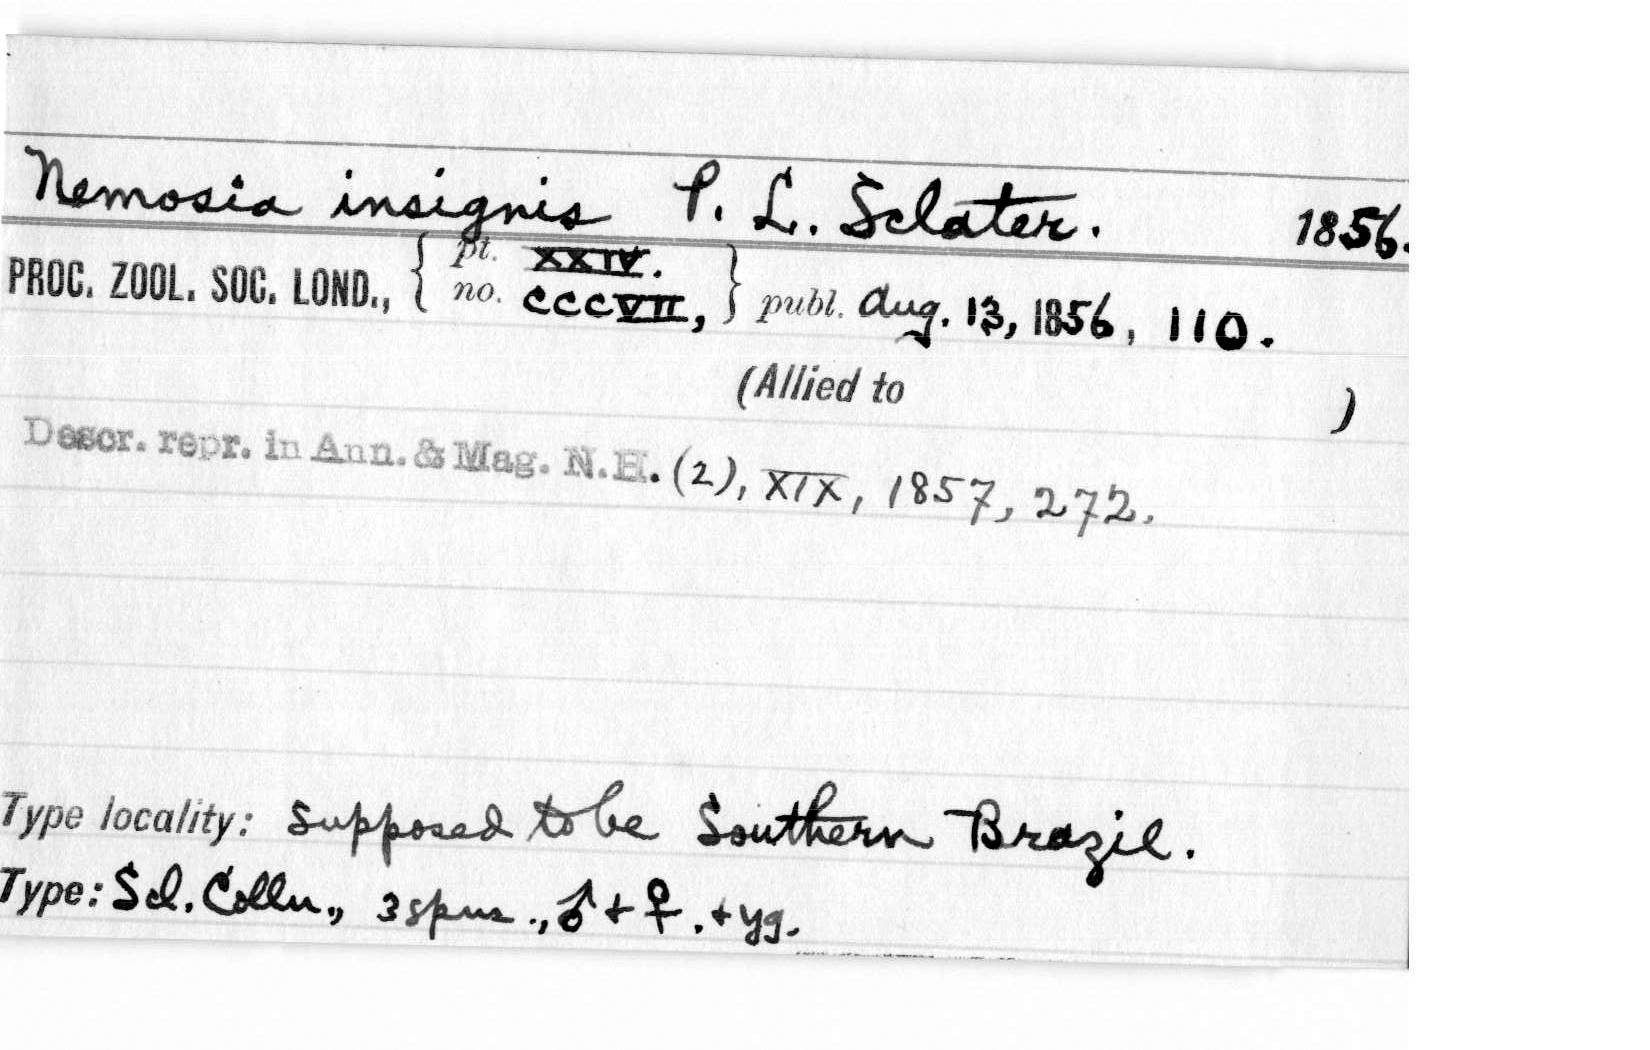 Nemosia insignis P. L. Sclater. 1856.
PROC. ZOOL. SOC. LOND., { pt. XXIV. no. CCCVII, } publ. Aug. 13, 1856, 110.
(Allied to )
Descr. repr. in Ann. & Mag. N.H. (2), XIX, 1857, 272.
Type locality: Supposed to be Southern Brazil.
Type: Scl. Colln., 3 spns., ♂ + ♀. + yg.